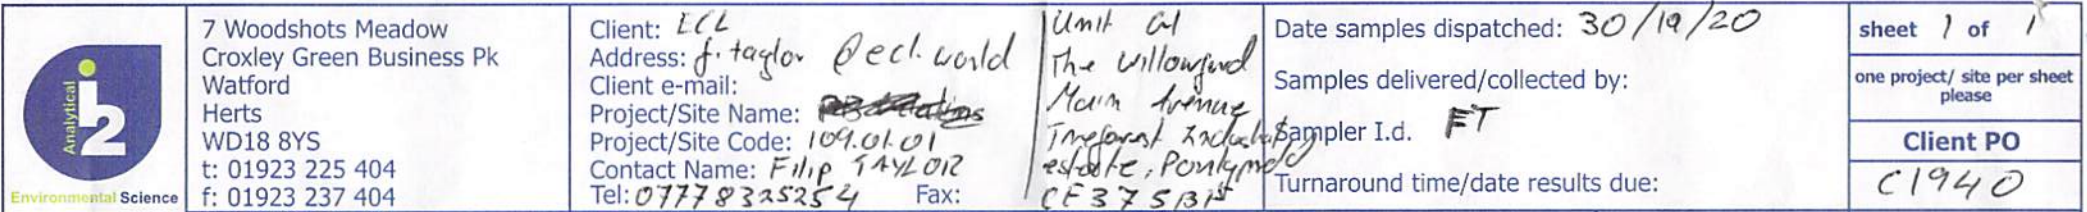 Analytical
i2
Environmental Science
7 Woodshots Meadow
Croxley Green Business Pk
Watford
Herts
WD18 8YS
t: 01923 225 404
f: 01923 237 404
Client: ECL
Address: f.taylor @ecl.world
Client e-mail:
Project/Site Name:
Project/Site Code: 109.01.01
Contact Name: Filip TAYLOR
Tel: 07778325254 Fax:
Unit G1
The Willowford
Main Avenue
Treforest Industry
estate, Pontypridd
CF37 5
Date samples dispatched: 30/19/20
Samples delivered/collected by:
Sampler I.d. FT
Turnaround time/date results due:
sheet 1 of 1
one project/ site per sheet
please
Client PO
C1940